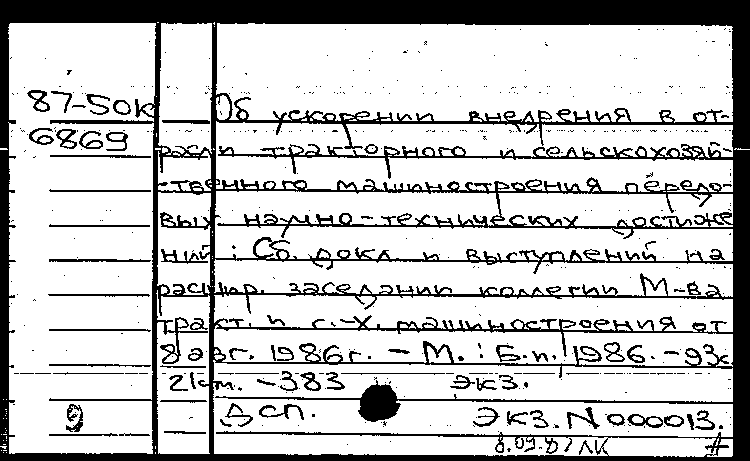 87-50к Об ускорении внедрения в от-
6869 расли тракторного и сельскохозяй-
ственного машиностроения передо-
вых научно-технических достиже
ний: Сб. докл и выступлений на
расшир. заседании коллегии М-ва
тракт. и с.-х. машиностроения от
8 авг. 1986г. - М.: Б.и., 1986. - 93с.
21см. - 383 экз.
9 ДСП. Экз. N 000013.
8.09.87 ЛК